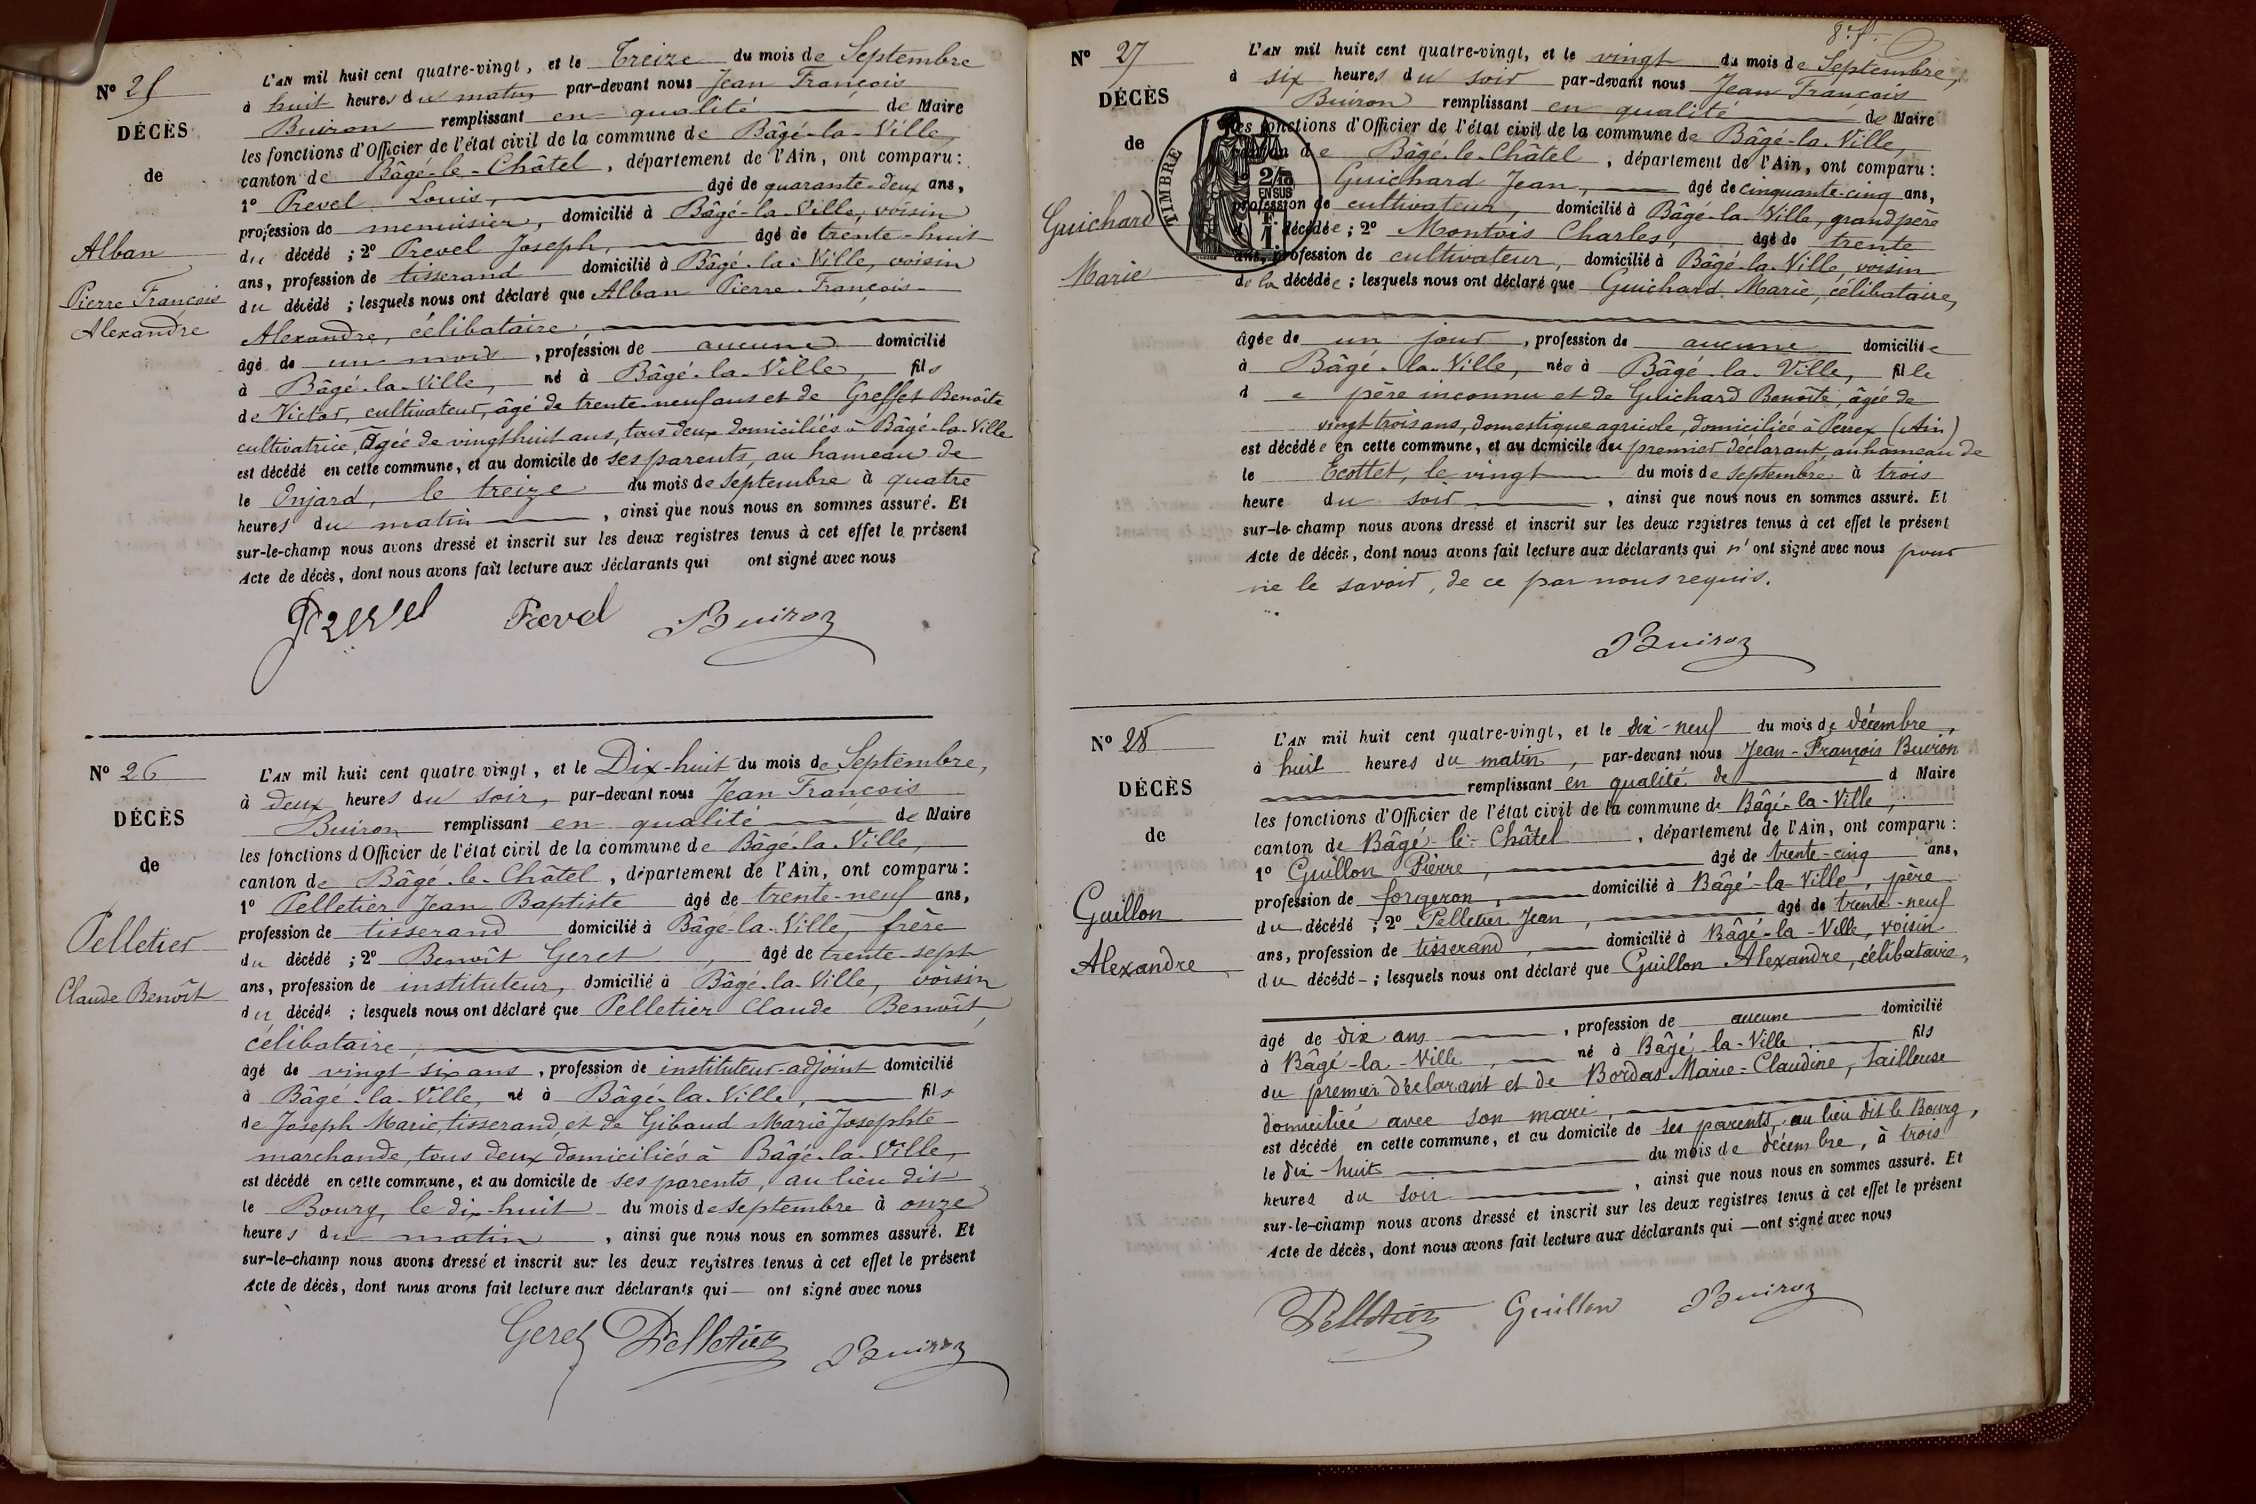 N° 25
DÉCÈS
de
Alban
Pierre François
Alexandre
L'AN mil huit cent quatre-vingt, et le Treize du mois de Septembre
à huit heures du matin par-devant nous Jean François
Buiron remplissant en qualité de Maire
les fonctions d'Officier de l'état civil de la commune de Bâgé-la-Ville,
canton de Bâgé-le-Châtel, département de l'Ain, ont comparu :
1° Prevel Louis, âgé de quarante-deux ans,
profession de menuisier, domicilié à Bâgé-la-Ville, voisin
du décédé ; 2° Prevel Joseph, âgé de trente-huit
ans, profession de tisserand domicilié à Bâgé-la-Ville, voisin
du décédé ; lesquels nous ont déclaré que Alban Pierre-François-
Alexandre, célibataire,
âgé de un mois, profession de aucune domicilié
à Bâgé-la-Ville, né à Bâgé-la-Ville, fils
de Victor, cultivateur, âgé de trente-neuf ans et de Greffet Benoîte
cultivatrice, âgée de vingt huit ans, tous deux domiciliés à Bâgé-la-Ville
est décédé en cette commune, et au domicile de ses parents, au hameau de
le Onjard, le treize du mois de septembre à quatre
heures du matin, ainsi que nous nous en sommes assuré. Et
sur-le-champ nous avons dressé et inscrit sur les deux registres tenus à cet effet le présent
Acte de décès, dont nous avons fait lecture aux déclarants qui ont signé avec nous
Prevel Buiron
N° 26
DÉCÈS
de
Pelletier
Claude Benoît
L'AN mil huit cent quatre vingt, et le Dix-huit du mois de Septembre,
à deux heures du soir, par-devant nous Jean François
Buiron remplissant en qualité de Maire
les fonctions d'Officier de l'état civil de la commune de Bâgé-la-Ville,
canton de Bâgé-le-Châtel, département de l'Ain, ont comparu :
1° Pelletier Jean Baptiste âgé de trente-neuf ans,
profession de tisserand domicilié à Bâgé-la-Ville, frère
du décédé ; 2° Benoît Geret, âgé de trente-sept
ans, profession de instituteur, domicilié à Bâgé-la-Ville, voisin
du décédé ; lesquels nous ont déclaré que Pelletier Claude Benoît,
célibataire,
âgé de vingt-six ans, profession de instituteur-adjoint domicilié
à Bâgé-la-Ville, né à Bâgé-la-Ville, fils
de Joseph Marie, tisserand, et de Gibaud Marie Josephte
marchande, tous deux domiciliés à Bâgé-la-Ville,
est décédé en cette commune, et au domicile de ses parents, au lieu dit
le Bourg, le dix-huit du mois de septembre à onze
heures du matin, ainsi que nous nous en sommes assuré. Et
sur-le-champ nous avons dressé et inscrit sur les deux registres tenus à cet effet le présent
Acte de décès, dont nous avons fait lecture aux déclarants qui ont signé avec nous
Geret Pelletier Buiron
N° 27
DÉCÈS
de
Guichard
Marie
TIMBRE
2/10
EN SUS
F.
1
L'AN mil huit cent quatre-vingt, et le vingt du mois de Septembre,
à six heures du soir par-devant nous Jean François
Buiron remplissant en qualité de Maire
les fonctions d'Officier de l'état civil de la commune de Bâgé-la-Ville,
canton de Bâgé-le-Châtel, département de l'Ain, ont comparu :
Guichard Jean, âgé de cinquante-cinq ans,
profession de cultivateur, domicilié à Bâgé-la-Ville, grand père
décédée ; 2° Montois Charles, âgé de trente
ans, profession de cultivateur, domicilié à Bâgé-la-Ville, voisin
de la décédée ; lesquels nous ont déclaré que Guichard Marie, célibataire,
âgée de un jour, profession de aucune domiciliée
à Bâgé-la-Ville, née à Bâgé-la-Ville, fille
de père inconnu et de Guichard Benoîte, âgée de
vingt trois ans, domestique agricole, domiciliée à Perrex (Ain)
est décédée en cette commune, et au domicile du premier déclarant, au hameau de
le Ecottet, le vingt du mois de septembre à trois
heure du soir, ainsi que nous nous en sommes assuré. Et
sur-le-champ nous avons dressé et inscrit sur les deux registres tenus à cet effet le présent
Acte de décès, dont nous avons fait lecture aux déclarants qui n'ont signé avec nous pour
ne le savoir, de ce par nous requis.
Buiron
N° 28
DÉCÈS
de
Guillon
Alexandre
L'AN mil huit cent quatre-vingt, et le dix-neuf du mois de décembre,
à huit heures du matin, par-devant nous Jean-François Buiron
remplissant en qualité de d Maire
les fonctions d'Officier de l'état civil de la commune de Bâgé-la-Ville,
canton de Bâgé-le-Châtel, département de l'Ain, ont comparu :
1° Guillon Pierre, âgé de trente-cinq ans,
profession de forgeron, domicilié à Bâgé-la-Ville, père
du décédé ; 2° Pelletier Jean, âgé de trente-neuf
ans, profession de tisserand, domicilié à Bâgé-la-Ville, voisin
du décédé ; lesquels nous ont déclaré que Guillon Alexandre, célibataire,
âgé de dix ans, profession de aucune domicilié
à Bâgé-la-Ville, né à Bâgé-la-Ville, fils
du premier déclarant et de Bordas Marie-Claudine, tailleuse
domiciliée avec son mari,
est décédé en cette commune, et au domicile de ses parents, au lieu dit le Bourg,
le dix-huit du mois de décembre, à trois
heures du soir, ainsi que nous nous en sommes assuré. Et
sur-le-champ nous avons dressé et inscrit sur les deux registres tenus à cet effet le présent
Acte de décès, dont nous avons fait lecture aux déclarants qui ont signé avec nous
Pelletier Guillon Buiron